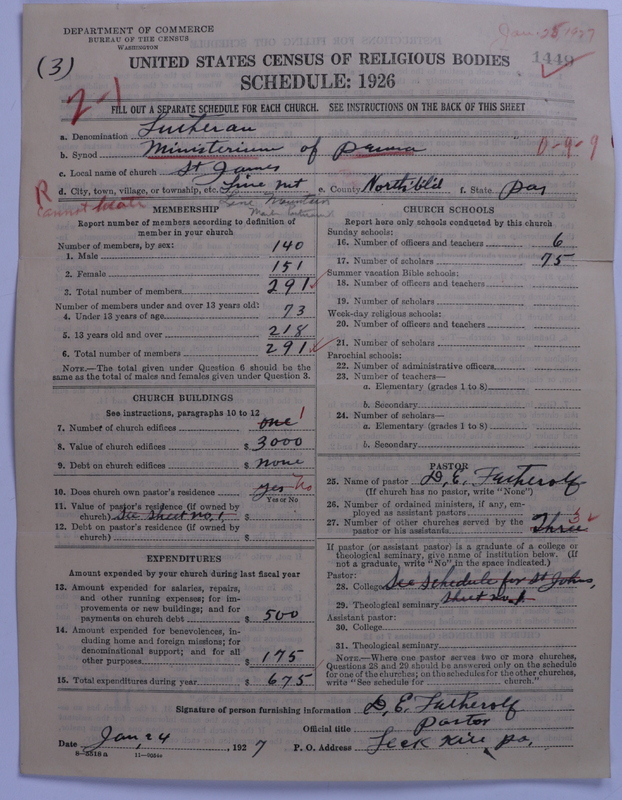 DEPARTMENT OF COMMERCE
BUREAU OF THE CENSUS
WASHINGTON
Jan. 25 1927
(3)
1449
UNITED STATES CENSUS OF RELIGIOUS BODIES
SCHEDULE: 1926
2-1
FILL OUT A SEPARATE SCHEDULE FOR EACH CHURCH. SEE INSTRUCTIONS ON THE BACK OF THIS SHEET
a. Denomination Lutheran
b. Synod Ministerium of Penna
0-9-9
c. Local name of church St James
d. City, town, village, or township, etc. Line Mt e. County North'bl'd f. State Pa
R
Cannot locate
Line Mountain
MEMBERSHIP
Report number of members according to definition of
member in your church
Number of members, by sex:
1. Male 140
2. Female 151
3. Total number of members 291
Number of members under and over 13 years old:
4. Under 13 years of age 73
5. 13 years old and over 218
6. Total number of members 291
NOTE.—The total given under Question 6 should be
same as the total of males and females given under Question 3.
CHURCH BUILDINGS
See instructions, paragraphs 10 to 12
7. Number of church edifices one 1
8. Value of church edifices $ 3000
9. Debt on church edifices $ none
10. Does church own pastor's residence yes No
Yes or No
11. Value of pastor's residence (if owned by
church) See Sheet no. 1 $
12. Debt on pastor's residence (if owned by
church) $
EXPENDITURES
Amount expended by your church during last fiscal year
13. Amount expended for salaries, repairs,
and other running expenses; for im-
provements or new buildings; and for
payments on church debt $ 500
14. Amount expended for benevolences, in-
cluding home and foreign missions; for
denominational support; and for all
other purposes $ 175
15. Total expenditures during year $ 675
CHURCH SCHOOLS
Report here only schools conducted by this church
Sunday schools:
16. Number of officers and teachers 6
17. Number of scholars 75
Summer vacation Bible schools:
18. Number of officers and teachers
19. Number of scholars
Week-day religious schools:
20. Number of officers and teachers
21. Number of scholars
Parochial schools:
22. Number of administrative officers
23. Number of teachers—
a. Elementary (grades 1 to 8)
b. Secondary
24. Number of scholars—
a. Elementary (grades 1 to 8)
b. Secondary
PASTOR
25. Name of pastor D. E. Fetherolf
(If church has no pastor, write "None")
26. Number of ordained ministers, if any, em-
ployed as assistant pastors
27. Number of other churches served by the
pastor or his assistants Three 3
If pastor (or assistant pastor) is a graduate of a college or
theological seminary, give name of institution below. (If
not a graduate, write "No" in the space indicated.)
Pastor:
28. College See Schedule for St Johns
29. Theological seminary Sheet no. 1
Assistant pastor:
30. College
31. Theological seminary
NOTE.—Where one pastor serves two or more churches,
Questions 28 and 29 should be answered only on the schedule
for one of the churches; on the schedules for the other churches,
write "See schedule for church."
Signature of person furnishing information D. E. Fetherolf
Official title Pastor
Date Jan. 24, 1927 P. O. Address Leck Kill Pa.
8—5518 a